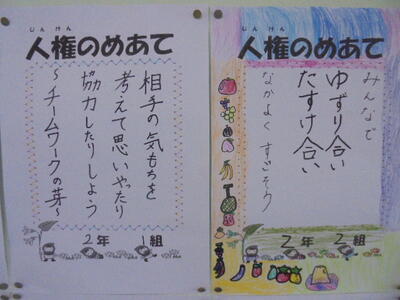 じんけん
人権のめあて
相手の気もちを
考えて思いやったり
協力したりしよう
～チームワークの芽～
2年 1組
じんけん
人権のめあて
みんなで
ゆずり合い
たすけ合い
なかよく すごそう
2年 2組